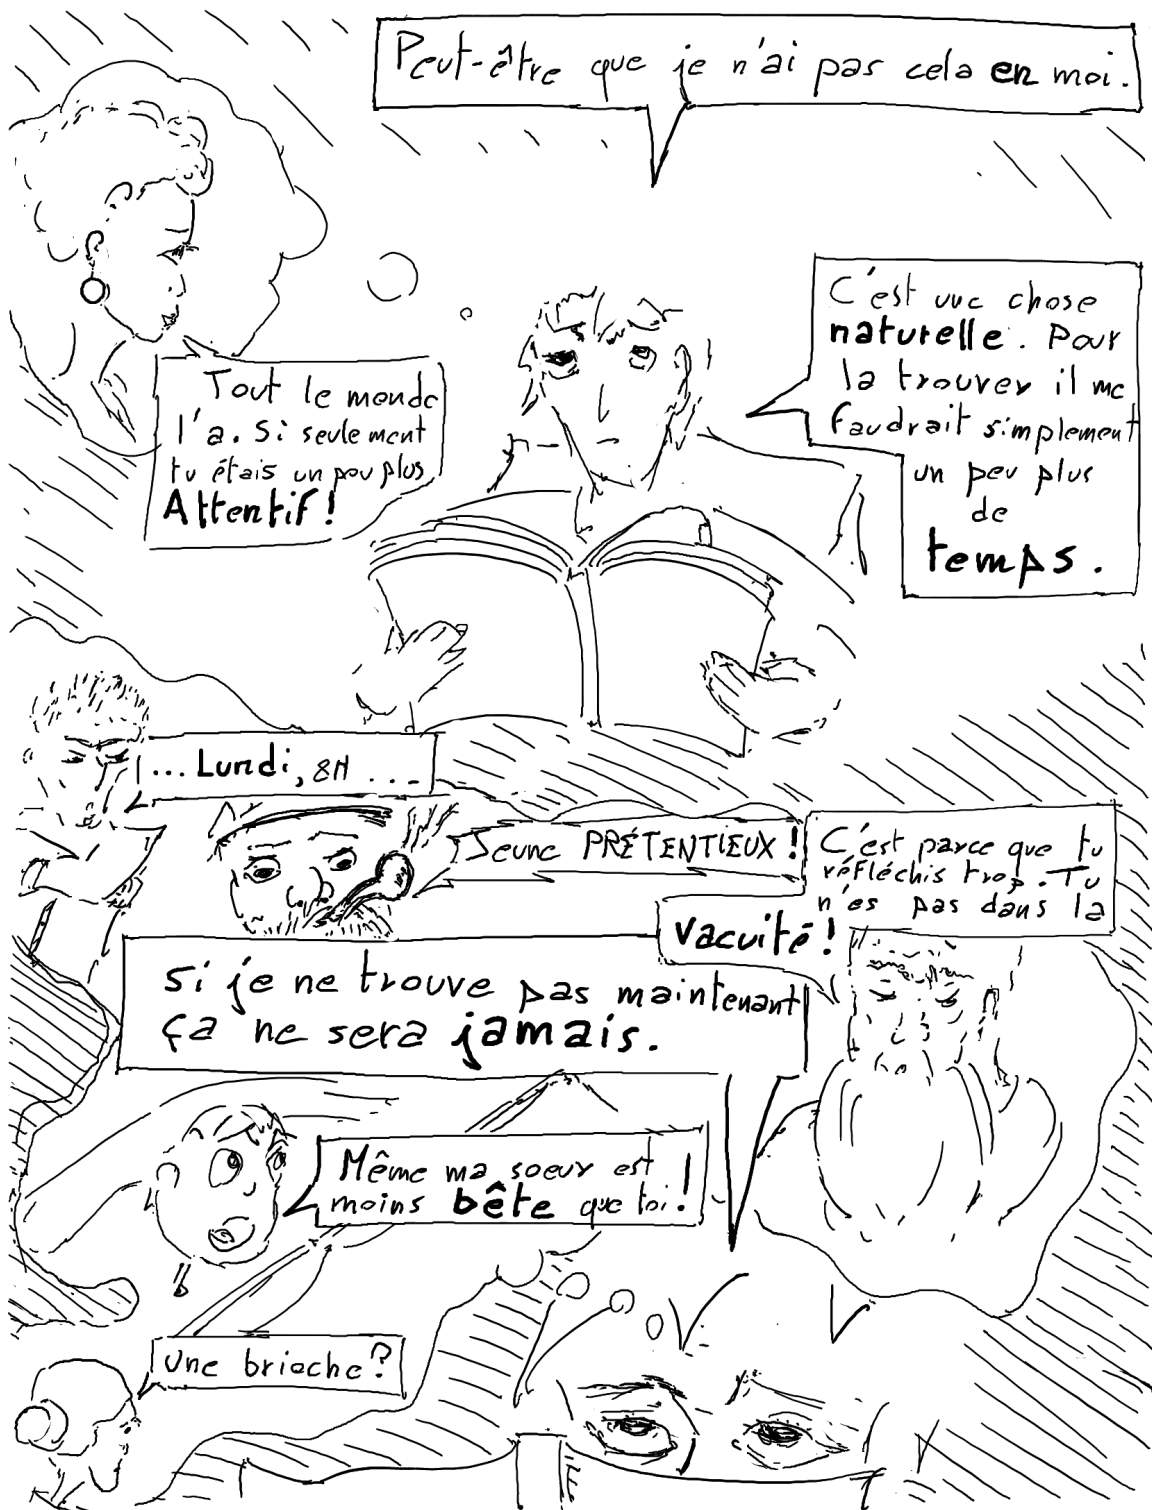 Peut-être que je n'ai pas cela en moi.
Tout le monde
l'a. Si seulement
tu étais un peu plus
Attentif!
C'est une chose
naturelle. Pour
la trouver il me
faudrait simplement
un peu plus
de
temps.
...Lundi, 8H ...
Jeune PRÉTENTIEUX!
C'est parce que tu
réfléchis trop. Tu
n'es pas dans la
vacuité!
Si je ne trouve pas maintenant
ça ne sera jamais.
Même ma soeur est
moins bête que toi!
Une brioche?